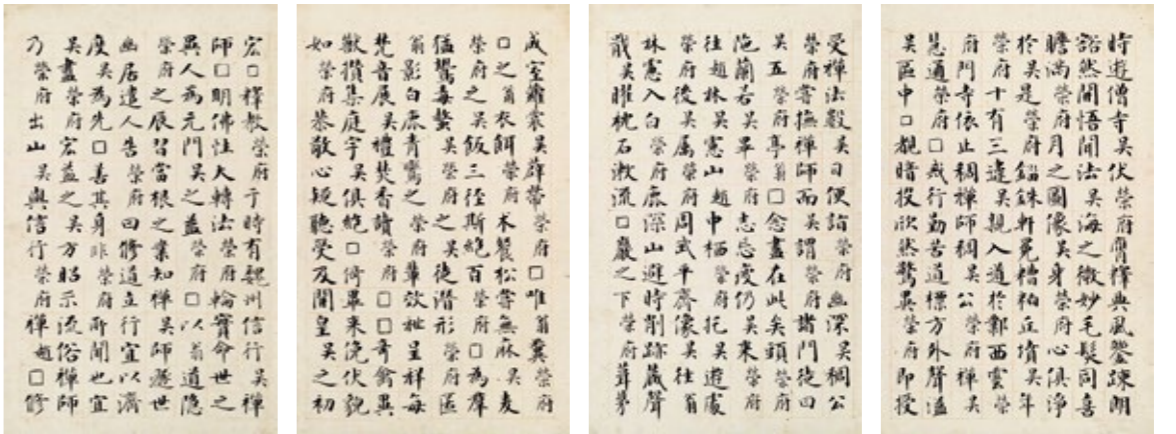 時遊僧寺吳伏榮府膺釋典風鑒疎朗
豁然開悟聞法吳海之微妙毛髮同喜
瞻滿榮府月之圖像吳身榮府心俱淨
於吳是榮府錙銖軒冕糟粕丘墳吳年
榮府十有三違吳親入道於鄴西雲榮
府門寺依止稠禪師稠吳公榮府禪吳
慧通榮府□戒行勤苦道標方外聲溢
吳區中□覩暗投欣然驚異榮府即授
受禪法數吳日便詣榮府幽深吳稠公
榮府嘗撫禪師而吳謂榮府諸門徒曰
吳五榮府亭翁□念盡在此矣頭榮府
陁蘭若吳畢榮府志忘疲仍吳來榮府
往趙林吳慮山趙中栖榮府托吳遊處
榮府後吳属榮府周武平齊像吳往翁
林慮入白榮府鹿深山避時削跡藏聲
戢吳曜枕石漱流□巖之下榮府葺茅
成室蘿裳吳薜帶榮府□唯翁糞榮府
□之翁衣餌榮府朮餐松嘗無麻吳麦
榮府之吳飯三徑斯絶百榮府□為羣
猛鷙毒螫吳榮府之吳徒潛形榮府匿
翁影白鹿青鸞之榮府輩效祉呈祥每
梵音展吳禮焚香讀榮府□□奇禽異
獸攢集庭宇吳俱絶□倚畢來俛伏貌
如榮府恭敬心疑聽受及開皇吳之初
宏□釋教榮府于時有魏州信行吳禪
師□明佛性大轉法榮府輪實命世之
異人為元門吳之益榮府□以翁道隱
榮府之辰習當根之業知禪吳師遯世
幽居遣人告榮府曰修道立行宜以濟
度吳為先□善其身非榮府所聞也宜
吳盡榮府宏益之吳方昭示流俗禪師
乃榮府出山吳與信行榮府禪趙□修